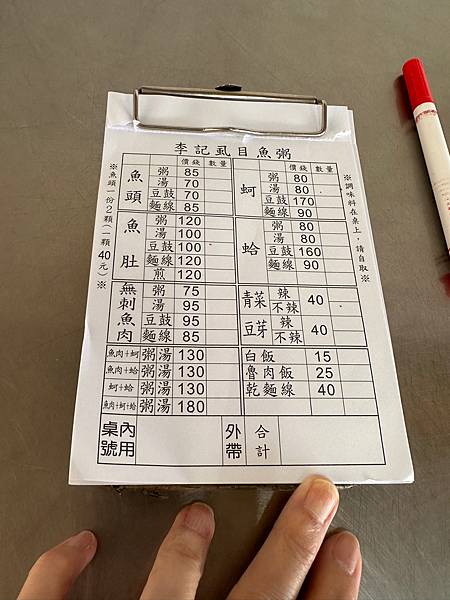 李記虱目魚粥
※魚頭一份2顆(一顆40元)※
※調味料在桌上，請自取※
價錢 數量 價錢 數量
魚頭 粥 85 蚵 粥 80
湯 70 湯 80
豆鼓 70 豆鼓 170
麵線 85 麵線 90
魚肚 粥 120 蛤 粥 80
湯 100 湯 80
豆鼓 100 豆鼓 160
麵線 120 麵線 90
煎 120
無刺魚肉 粥 75 青菜 辣 不辣 40
湯 95
豆鼓 95 豆芽 辣 不辣 40
麵線 85
魚肉+蚵 粥湯 130 白飯 15
魚肉+蛤 粥湯 130 魯肉飯 25
蚵+蛤 粥湯 130 乾麵線 40
魚肉+蚵+蛤 粥湯 180
內用桌號 外帶 合計